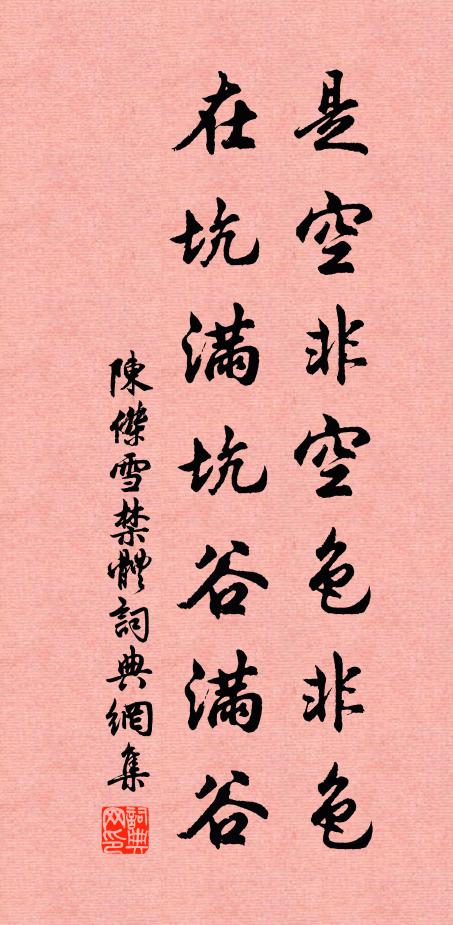 是空非空色非色
在坑滿坑谷滿谷
陳傑雪禁體詞典網集
詞典网印